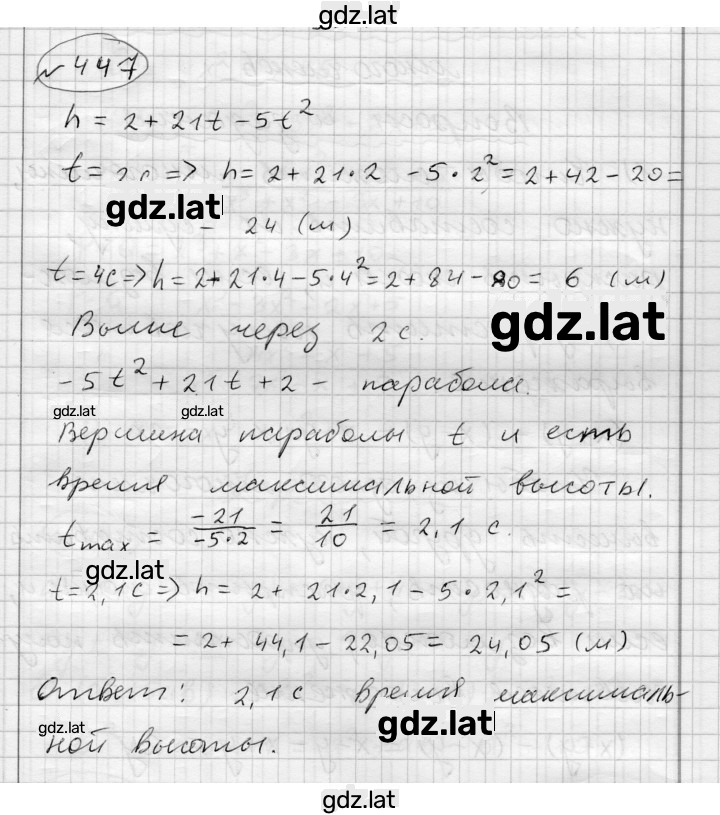 gdz.lat
№ 447
h = 2 + 21t - 5t²
t = 2c => h = 2 + 21·2 - 5·2² = 2 + 42 - 20 =
gdz.lat
= 24 (м)
t = 4c => h = 2 + 21·4 - 5·4² = 2 + 84 - 80 = 6 (м)
gdz.lat
Выше через 2 c.
-5t² + 21t + 2 - парабола.
gdz.lat gdz.lat
Вершина параболы t и есть
время максимальной высоты.
t max = -21/-5·2 = 21/10 = 2,1 c.
gdz.lat
t = 2,1 c => h = 2 + 21·2,1 - 5·2,1² =
= 2 + 44,1 - 22,05 = 24,05 (м)
Ответ: 2,1 c время максималь-
gdz.lat gdz.lat
ной высоты.
gdz.lat